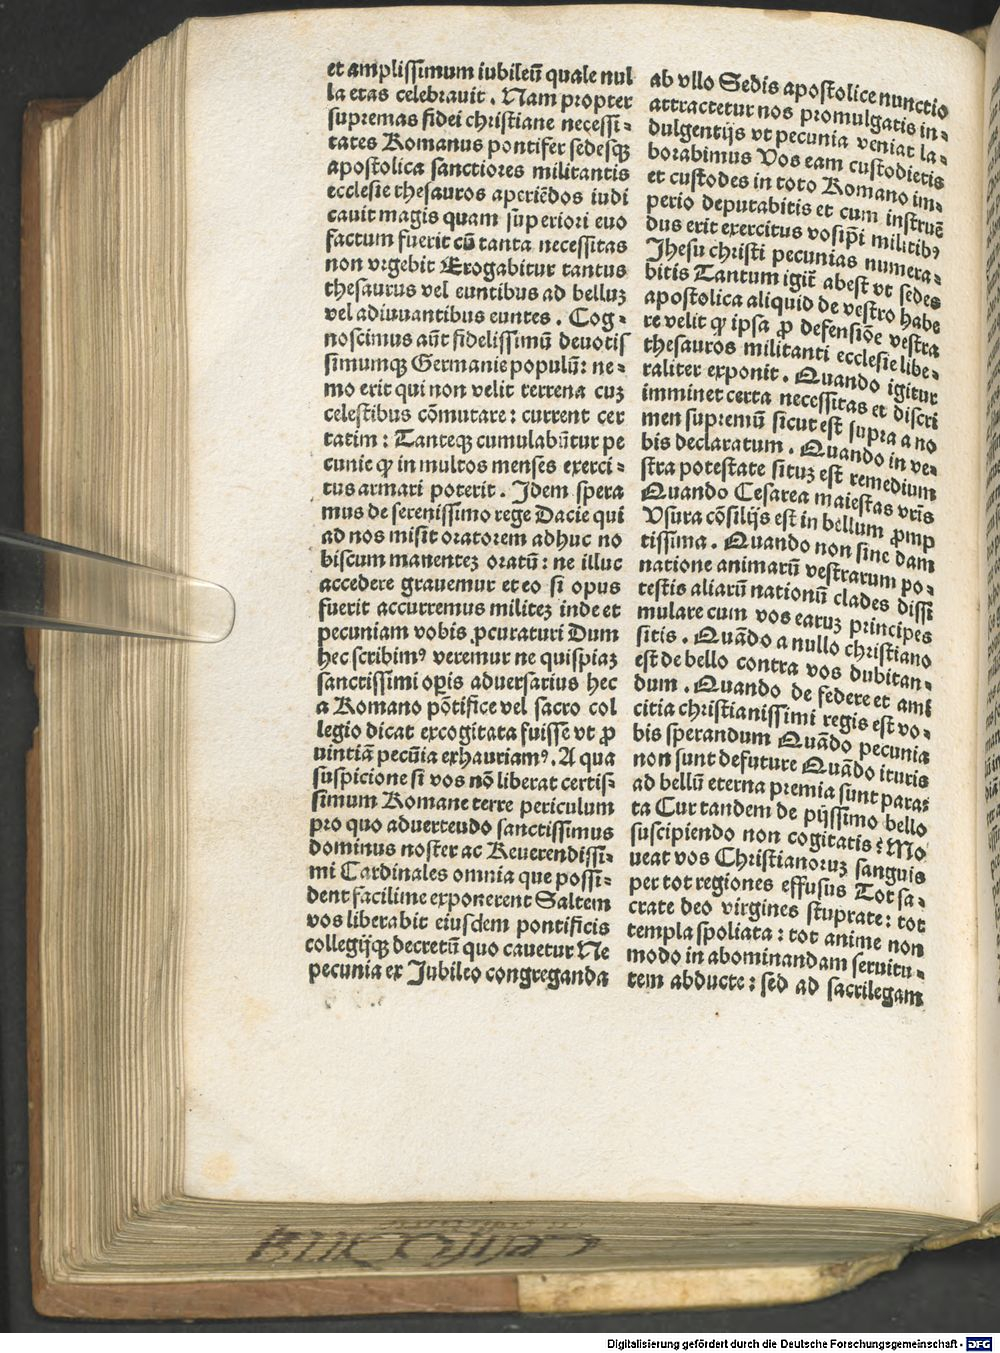 et ampliſſimum iubileū quale nul
la etas celebrauit. Nam propter
supremas fidei chriſtiane neceſſi-
tates Romanus pontifex sedesqꝫ
apoſtolica ſanctiores militantis
eccleſie theſauros aperiēdos iudi
cauit magis quam ſuperiori euo
factum fuerit cū tanta neceſſitas
non vrgebit Erogabitur tantus
theſaurus vel euntibus ad belluꝫ
vel adiuuantibus euntes. Cog-
noſcimus aūt fideliſſimū deuotiſ
ſimumqꝫ Germanie populū: ne-
mo erit qui non velit terrena cuꝫ
celeſtibus cōmutare: current cer
tatim: Tanteqꝫ cumulabūtur pe
cunie ꝙ in multos menſes exerci-
tus armari poterit. Idem ſpera
mus de ſereniſſimo rege Dacie qui
ad nos miſit oratorem adhuc no
biſcum manenteꝫ oratū: ne illuc
accedere grauemur et eo ſi opus
fuerit accurremus militeꝫ inde et
pecuniam vobis ꝓcuraturi Dum
hec ſcribimꝰ veremur ne quiſpiaꝫ
ſanctiſſimi oꝑis aduerſarius hec
a Romano pōtifice vel ſacro col
legio dicat excogitata fuiſſe vt ꝓ
uintiā pecūia exhauriamꝰ. A qua
ſuſpicione ſi vos nō liberat certiſ-
ſimum Romane terre periculum
pro quo aduerteudo ſanctiſſimus
dominus noſter ac Reuerendiſſi-
mi Cardinales omnia que poſſi-
dent facilime exponerent Saltem
vos liberabit eiuſdem pontificis
collegijqꝫ decretū quo cauetur Ne
pecunia ex Jubileo congreganda
ab vllo Sedis apoſtolice nunctio
attractetur nos promulgatis in-
dulgentijs vt pecunia veniat la-
borabimus Vos eam cuſtodietis
et cuſtodes in toto Romano im-
perio deputabitis et cum inſtruē
dus erit exercitus vos ip̄i militibꝰ
Jheſu chriſti pecunias numera-
bitis Tantum igit̄ abeſt vt ſedes
apoſtolica aliquid de veſtro habe
re velit ꝙ ipſa ꝓ defenſiōe veſtra
theſauros militanti eccleſie libe-
raliter exponit. Quando igitur
imminet certa neceſſitas et diſcri
men supremū ſicut eſt ſupra a no
bis declaratum. Quando in ve-
ſtra poteſtate ſituꝫ eſt remedium
Quando Ceſarea maieſtas vr̄is
Vſura cōſilijs eſt in bellum ꝓmp
tiſſima. Quando non ſine dam
natione animarū veſtrarum po-
teſtis aliarū nationū clades diſſi
mulare cum vos earuꝫ principes
ſitis. Quādo a nullo chriſtiano
eſt de bello contra vos dubitan-
dum. Quando de federe et ami
citia chriſtianiſſimi regis eſt vo-
bis ſperandum Quādo pecunia
non ſunt defuture Quādo ituris
ad bellū eterna premia ſunt para-
ta Cur tandem de pijſſimo bello
ſuſcipiendo non cogitatis? Mo
ueat vos Chriſtianoruꝫ ſanguis
per tot regiones effuſus Tot ſa-
crate deo virgines ſtuprate: tot
templa ſpoliata: tot anime non
modo in abominandam ſeruitu-
tem abducte: ſed ad ſacrilegam
Digitalisierung gefördert durch die Deutsche Forschungsgemeinschaft - DFG